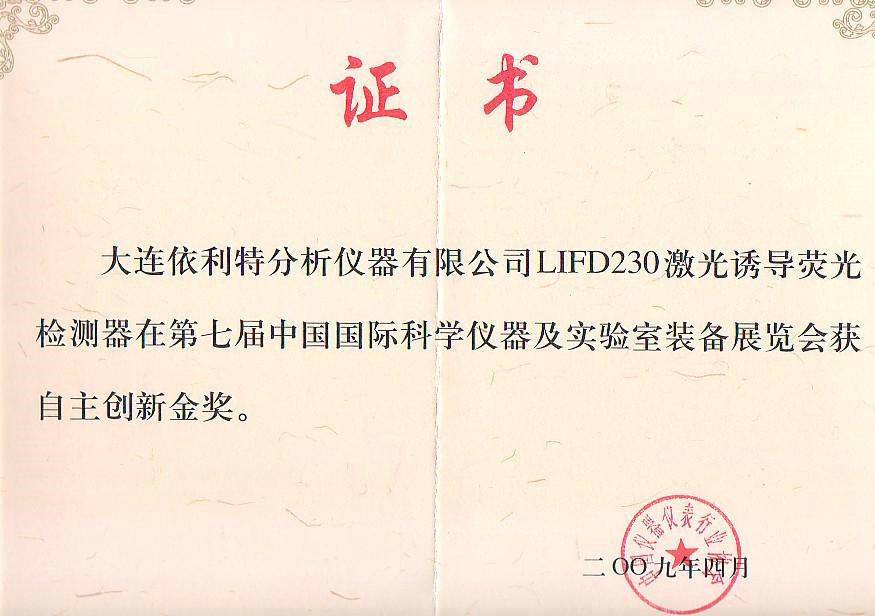 证 书
大连依利特分析仪器有限公司LIFD230激光诱导荧光
检测器在第七届中国国际科学仪器及实验室装备展览会获
自主创新金奖。
中国仪器仪表行业协会
二OO九年四月